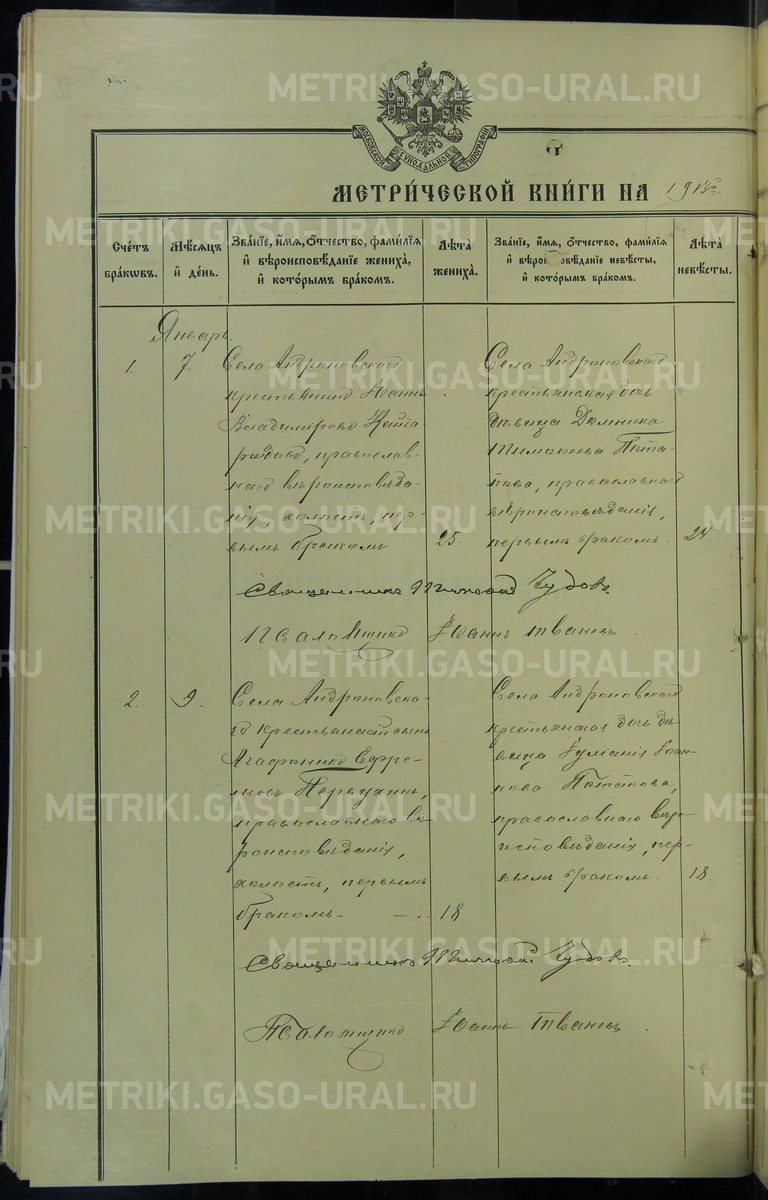 МОСКОВСКОЙ СѴНОДАЛЬНОЙ ТИПОГРАФІИ
МЕТРИ́ЧЕСКОЙ КНИ́ГИ НА
Сче́тъ бра́кѡвъ.
Мѣ́сяцъ и҆ де́нь.
Зва́нїе, и҆́мя, ѻ҆́тчество, фами́лїя и҆ вѣроисповѣ́данїе жениха̀, и҆ кото́рымъ бра́комъ.
Лѣ́та жениха̀.
Зва́нїе, и҆́мя, ѻ҆́тчество, фами́лїя и҆ вѣроисповѣ́данїе невѣ́сты, и҆ кото́рымъ бра́комъ.
Лѣ́та невѣ́сты.
Январь.
1.
7.
Села Андроновскаго
крестьянинъ Іоаннъ
Владиміровъ
православ-
наго вѣроисповѣда-
нія, холостъ, пер-
вымъ бракомъ
25.
Села Андроновскаго
крестьянская дочь
дѣвица Домника
Тимоѳеева Пота-
пова, православнаго
вѣроисповѣданія,
первымъ бракомъ.
24
Священникъ Чудовъ
Псаломщикъ Іоаннъ Ивановъ
2.
9.
Села Андроновска-
го крестьянскій сынъ
Агафоникъ Ефре-
мовъ Первухинъ,
православнаго вѣ-
роисповѣданія,
холостъ, первымъ
бракомъ
18.
Села Андроновскаго
крестьянская дочь дѣ-
вица Іуліанія Іоан-
нова Потапова,
православнаго вѣро-
исповѣданія, пер-
вымъ бракомъ.
18.
Священникъ Чудовъ.
Псаломщикъ Іоаннъ Ивановъ.
METRIKI.GASO-URAL.RU